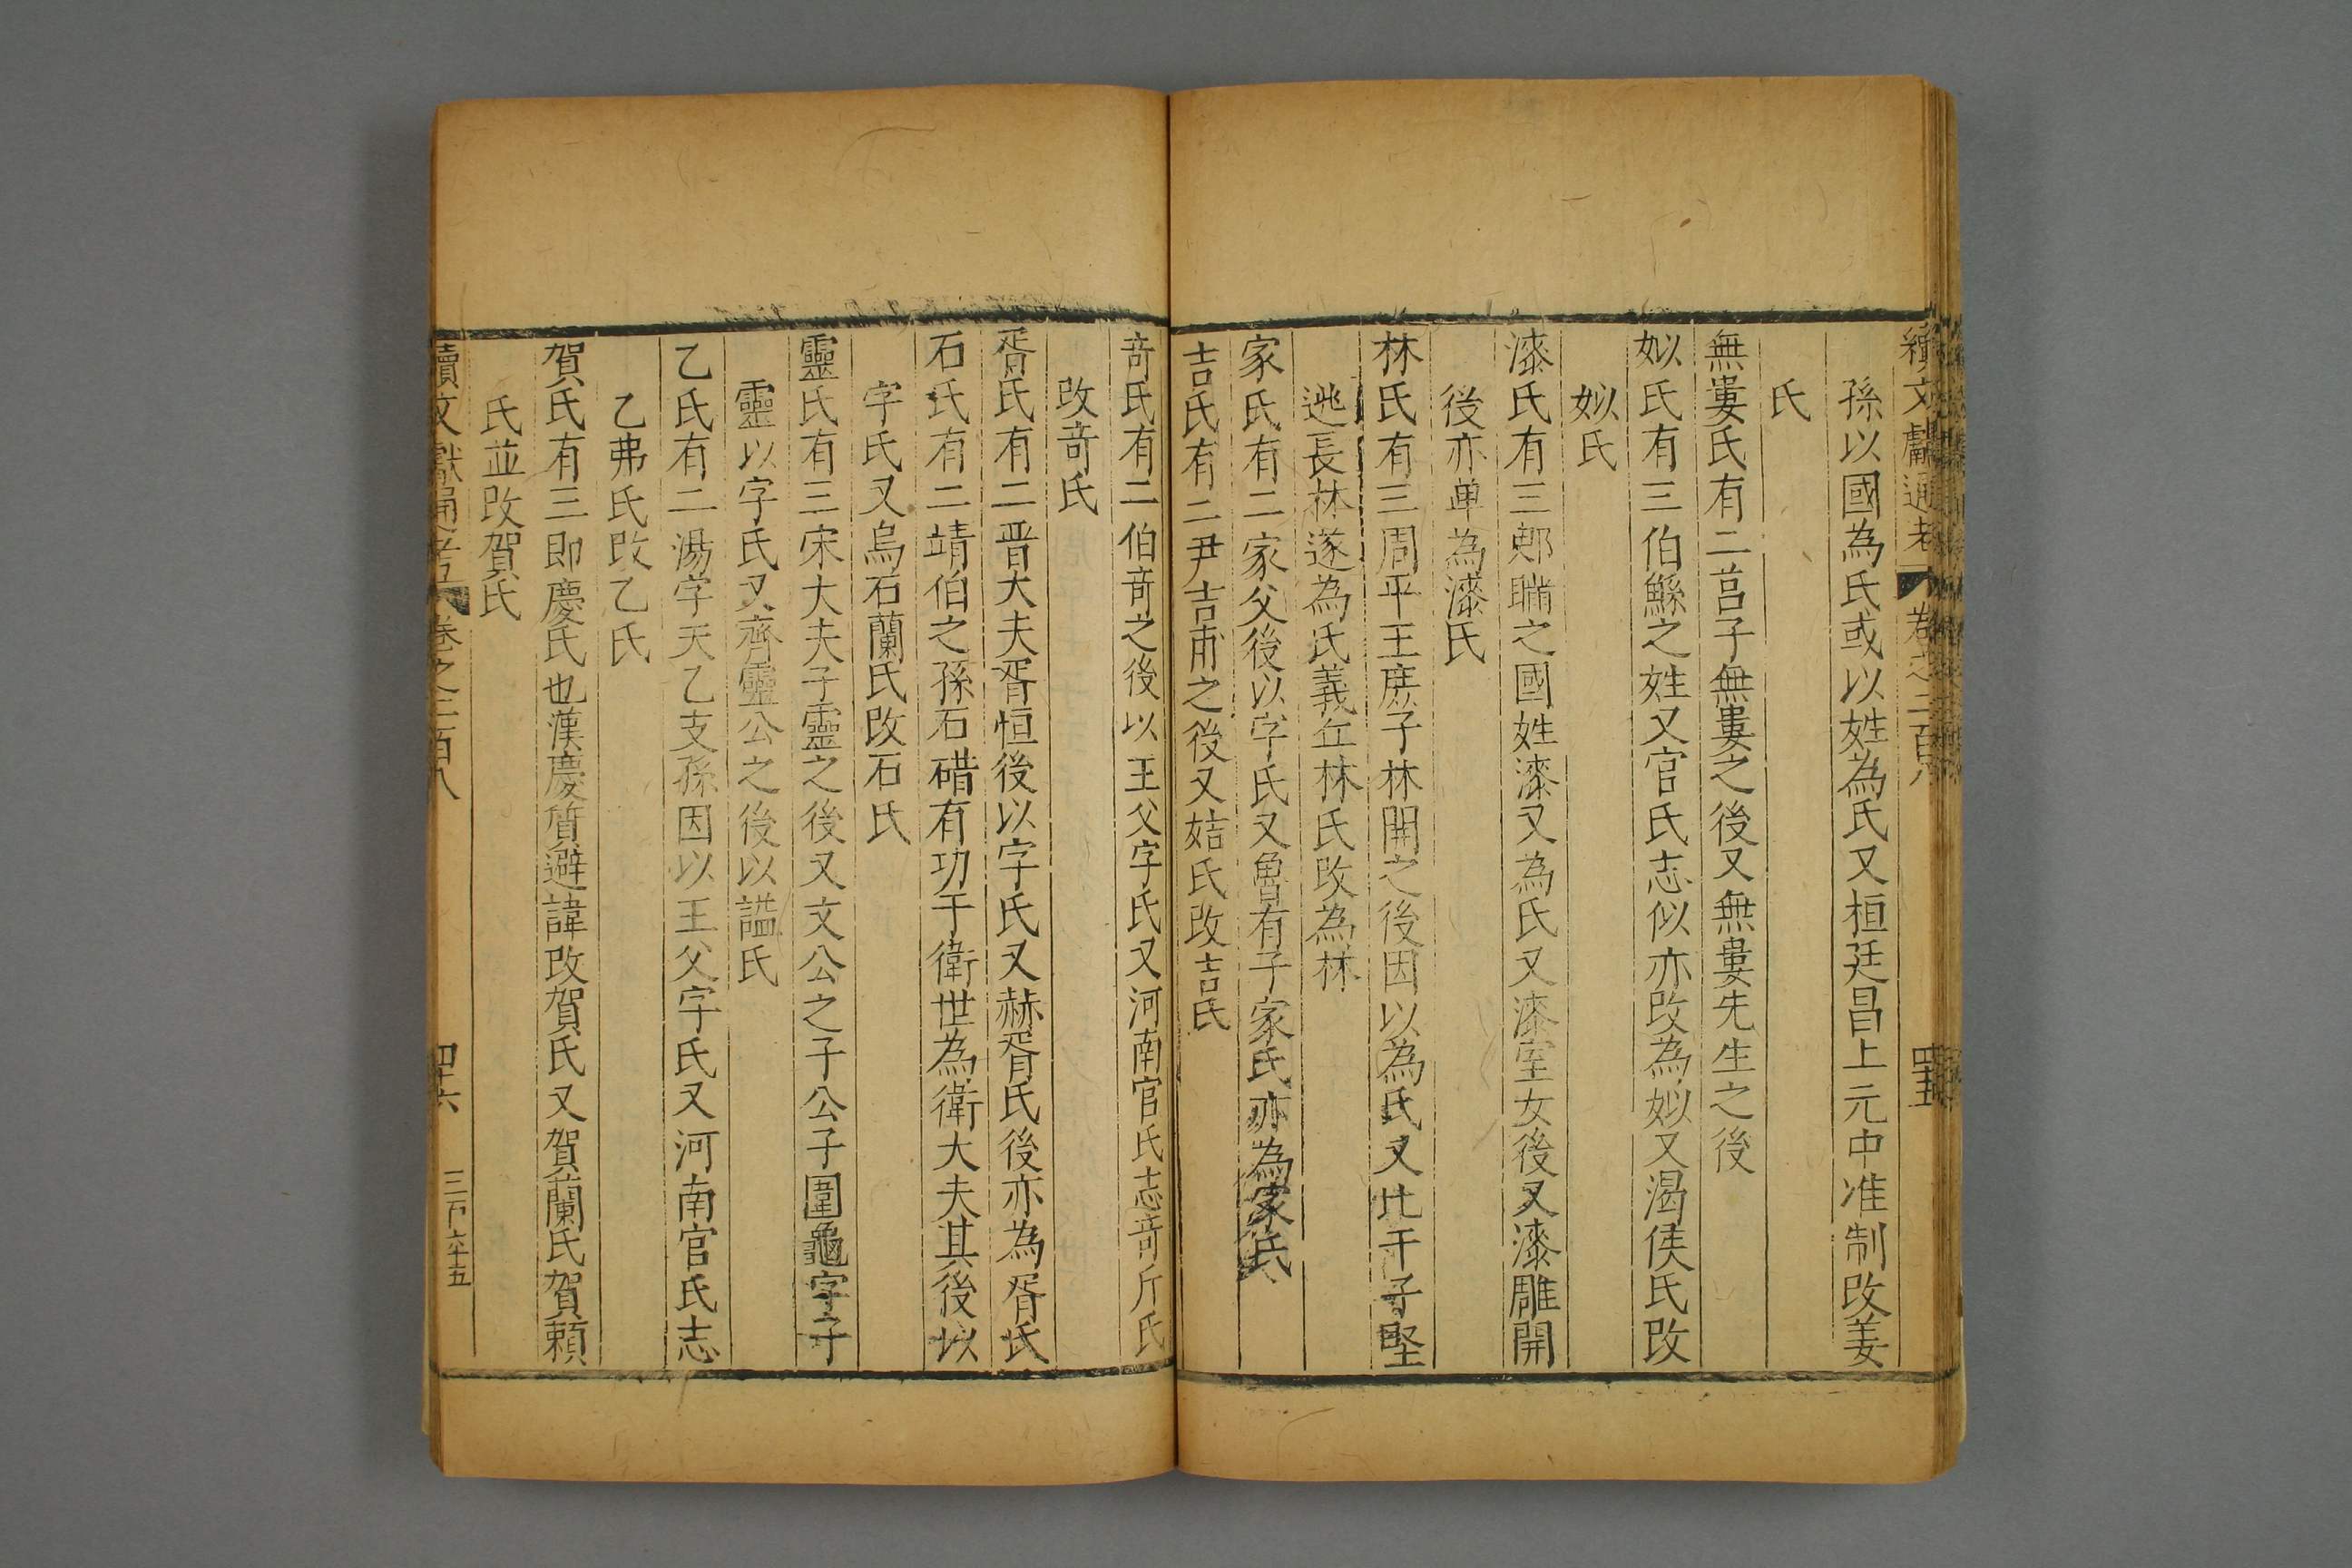 續文獻通考 卷之二百八 四十五
孫以國為氏或以姓為氏又桓廷昌上元中准制改姜
氏
無婁氏有二莒子無婁之後又無婁先生之後
姒氏有三伯鯀之姓又官氏志似亦改為姒又渴侯氏改
姒氏
漆氏有三鄋瞞之國姓漆又為氏又漆室女後又漆雕開
後亦單為漆氏
林氏有三周平王庶子林開之後因以為氏又比干子堅
逃長林遂為氏義丘林氏改為林
家氏有二家父後以字氏又魯有子家氏亦為家氏
吉氏有二尹吉甫之後又姞氏改吉氏
奇氏有二伯奇之後以王父字氏又河南官氏志奇斤氏
改奇氏
胥氏有二晋大夫胥恒後以字氏又赫胥氏後亦為胥氏
石氏有二靖伯之孫石碏有功于衛世為衛大夫其後以
字氏又烏石蘭氏改石氏
靈氏有三宋大夫子靈之後又文公之子公子圍龜字子
靈以字氏又齊靈公之後以諡氏
乙氏有二湯字天乙支孫因以王父字氏又河南官氏志
乙弗氏改乙氏
賀氏有三即慶氏也漢慶質避諱改賀氏又賀蘭氏賀賴
氏並改賀氏
續文獻通考 卷之二百八 四十六 三百六十五